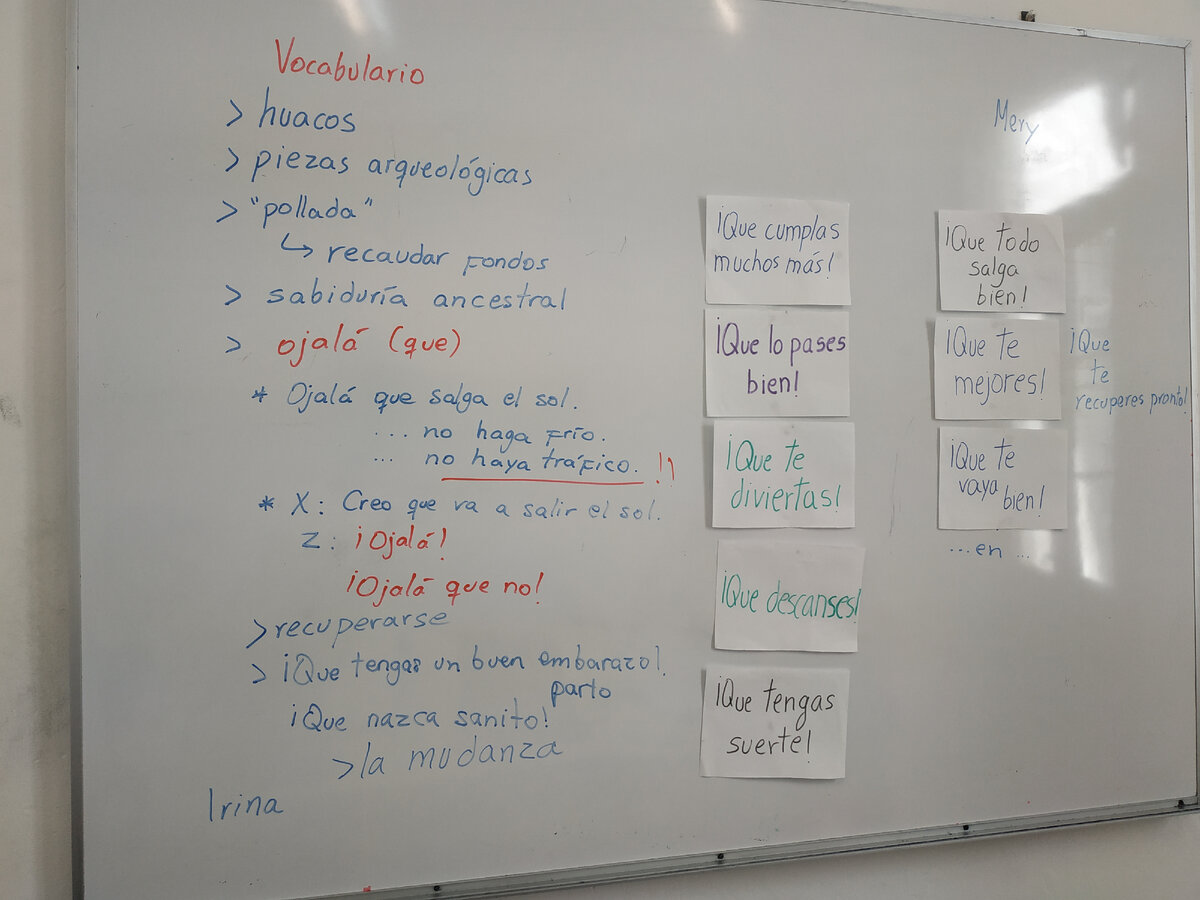 Vocabulario
> huacos
> piezas arqueológicas
> "pollada"
↳ recaudar fondos
> sabiduría ancestral
> ojalá (que)
* Ojalá que salga el sol.
... no haga frío.
... no haya tráfico. !!
* X: Creo que va a salir el sol.
Z: ¡Ojalá!
¡Ojalá que no!
> recuperarse
> ¡Que tengas un buen embarazo!
parto
¡Que nazca sanito!
> la mudanza
Irina
¡Que cumplas
muchos más!
¡Que lo pases
bien!
¡Que te
diviertas!
¡Que descanses!
¡Que tengas
suerte!
Mery
¡Que todo
salga
bien!
¡Que te
mejores!
¡Que
te
recuperes pronto!
¡Que te
vaya
bien!
...en ...